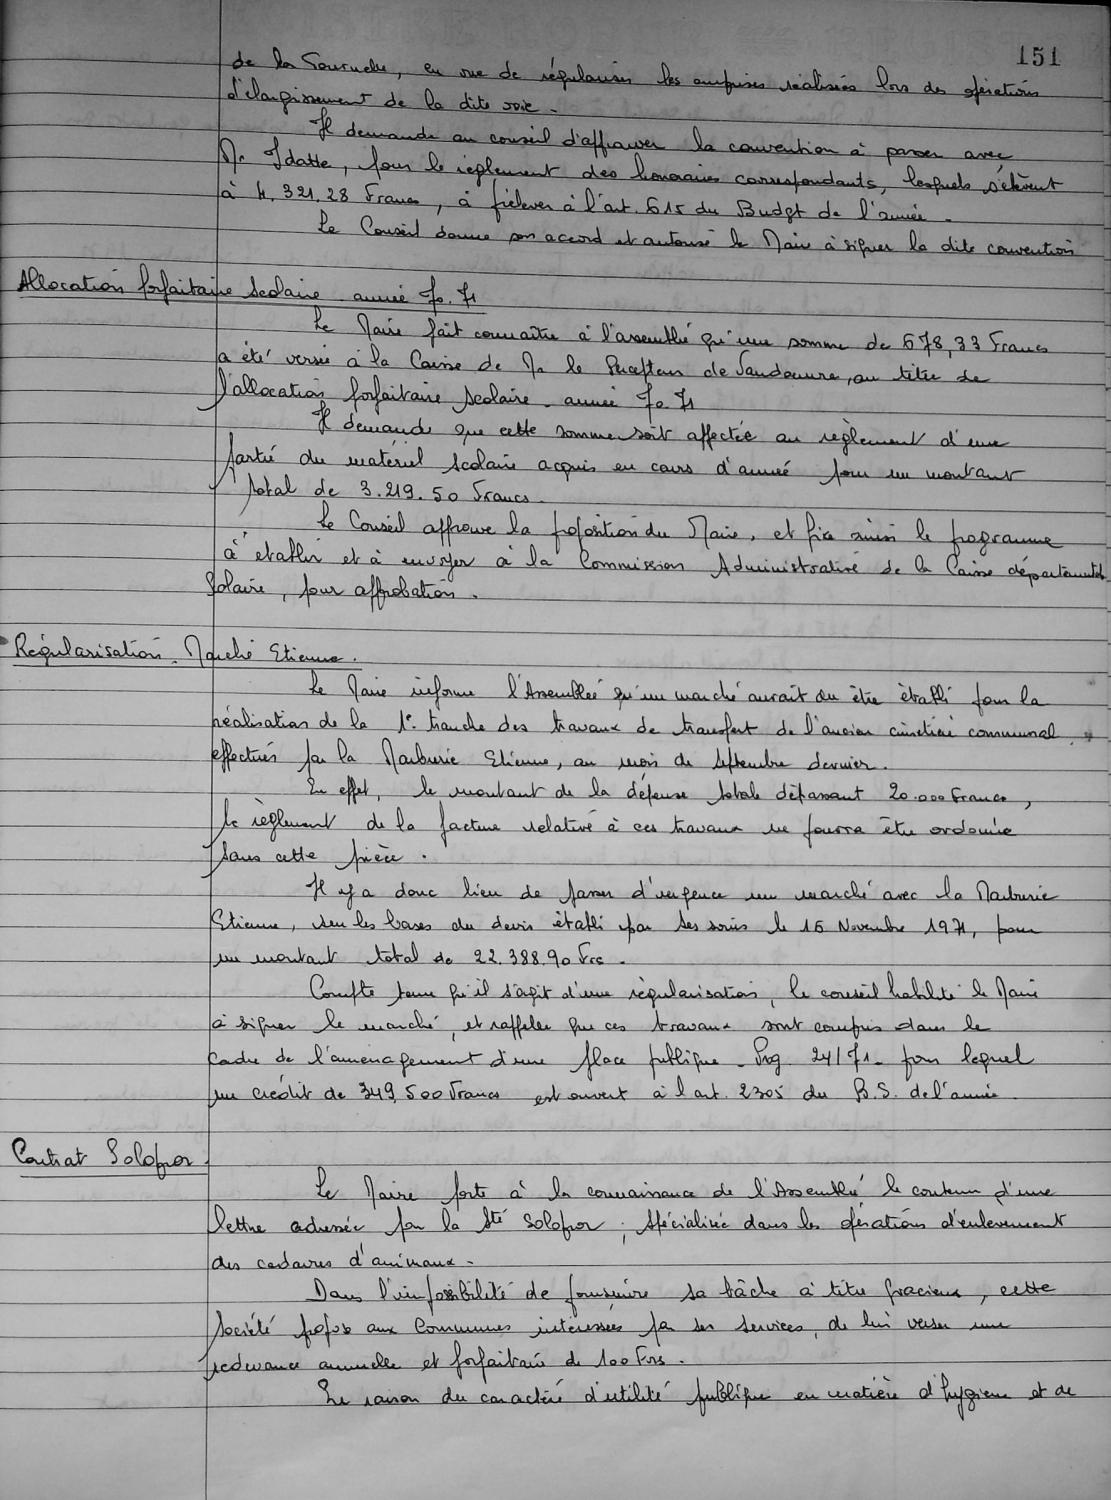 151
de la Souruche, en vue de régulariser les emprises réalisées lors des opérations
d'élargissement de la dite voie.
Il demande au conseil d'approuver la convention à passer avec
Mr Idatte, pour le règlement des honoraires correspondants, lesquels s'élèvent
à 4.321.28 Francs, à prélever à l'art. 615 du Budget de l'année.
Le Conseil donne son accord et autorise le Maire à signer la dite convention
Allocation forfaitaire scolaire année 70.71
Le Maire fait connaître à l'assemblée qu'une somme de 678,33 Francs
a été versée à la Caisse de Mr le Percepteur de Vandœuvre, au titre de
l'allocation forfaitaire scolaire - année 70.71
Il demande que cette somme soit affectée au règlement d'une
partie du matériel scolaire acquis en cours d'année pour un montant
total de 3.219.50 Francs.
Le Conseil approuve la proposition du Maire, et fixe ainsi le programme
à établir et à envoyer à la Commission Administrative de la Caisse départementale
Scolaire, pour approbation.
Régularisation. Marché Etienne.
Le Maire informe l'Assemblée qu'un marché aurait du être établi pour la
réalisation de la 1e. tranche des travaux de transfert de l'ancien cimetière communal
effectués par la Marbrerie Etienne, au mois de Septembre dernier.
En effet, le montant de la dépense totale dépassant 20.000 Francs,
le règlement de la facture relative à ces travaux ne pourra être ordonnée
sans cette pièce.
Il y a donc lieu de passer d'urgence un marché avec la Marbrerie
Etienne, sur les bases du devis établi par ses soins le 15 Novembre 1971, pour
un montant total de 22.388.90 Frs.
Compte tenu qu'il s'agit d'une régularisation, le conseil habilite le Maire
à signer le marché, et rappelle que ces travaux sont compris dans le
cadre de l'aménagement d'une place publique - Prog. 24/71 - pour lequel
un crédit de 349.500 Francs est ouvert à l'art. 2305 du B.S. de l'année.
Contrat Solopor.
Le Maire porte à la connaissance de l'Assemblée le contenu d'une
lettre adressée par la Sté Solopor, spécialisée dans les opérations d'enlèvement
des cadavres d'animaux.
Dans l'impossibilité de poursuivre sa tâche à titre gracieux, cette
société propose aux Communes intéressées par ses services, de lui verser une
redevance annuelle et forfaitaire de 100 Frs.
En raison du caractère d'utilité publique en matière d'hygiène et de